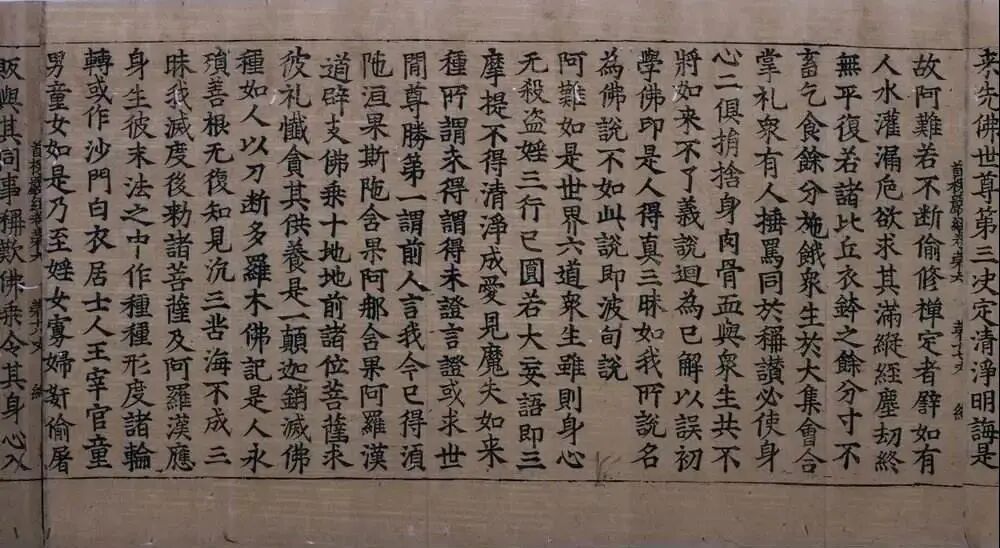 来先佛世尊第三决定清淨明誨是
故阿難若不断偷修禪定者譬如有
人水灌漏卮欲求其滿縱經塵劫終
無平復若諸比丘衣鉢之餘分寸不
畜乞食餘分施餓衆生於大集會合
掌礼衆有人捶罵同於稱讃必使身
心二俱捐捨身肉骨血與衆生共不
將如来不了義說迴為已解以誤初
學佛印是人得真三昧如我所說名
為佛說不如此說即波旬說
阿難如是世界六道衆生雖則身心
无殺盗婬三行已圓若大妄語即三
摩提不得清淨成愛見魔失如来
種所謂未得謂得未證言證或求世
間尊勝第一謂前人言我今已得湏
陁洹果斯陁含果阿那含果阿羅漢
道辟支佛乘十地地前諸位菩薩求
彼礼懺貪其供養是一顛迦銷滅佛
種如人以刀断多羅木佛記是人永
殞善根无復知見沉三苦海不成三
昧我滅度後勑諸菩薩及阿羅漢應
身生彼末法之中作種種形度諸輪
轉或作沙門白衣居士人王宰官童
男童女如是乃至婬女寡婦姧偷屠
販與其同事稱歎佛乗令其身心入